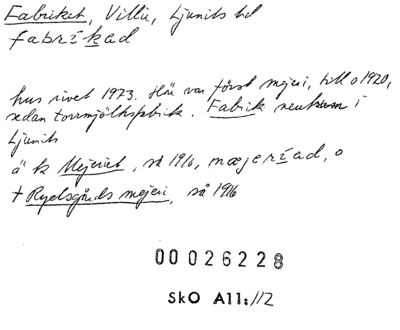 Fabriket, Villie, Ljunits hd
fabríkad
hus rivet 1973. Här var först mejeri, till o 1920,
sedan torrmjölksfabrik. Fabrik neutrum i
Ljunits
ä k Mejeriet, så 1916, mæjeríad, o
+ Rydsgårds mejeri, så 1916
00026228
SkO A11:112